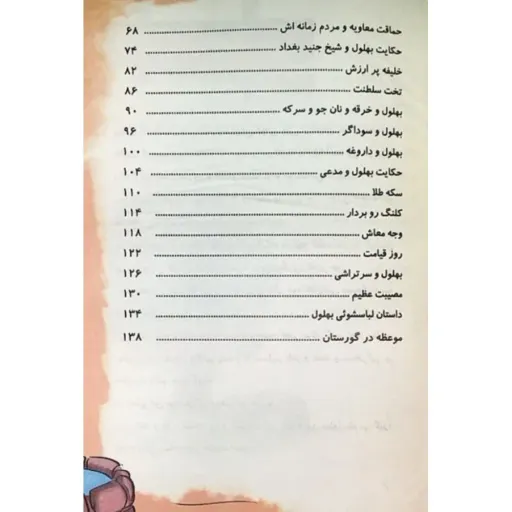 حماقت معاویه و مردم زمانه اش ................................ ۶۸
حکایت بهلول و شیخ جنید بغداد ................................ ۷۴
خلیفه پر ارزش ................................ ۸۲
تخت سلطنت ................................ ۸۶
بهلول و خرقه و نان جو و سرکه ................................ ۹۰
بهلول و سوداگر ................................ ۹۶
بهلول و داروغه ................................ ۱۰۰
حکایت بهلول و مدعی ................................ ۱۰۴
سکه طلا ................................ ۱۱۰
کلنگ رو بردار ................................ ۱۱۴
وجه معاش ................................ ۱۱۸
روز قیامت ................................ ۱۲۲
بهلول و سر تراشی ................................ ۱۲۶
مصیبت عظیم ................................ ۱۳۰
داستان لباسشوئی بهلول ................................ ۱۳۴
موعظه در گورستان ................................ ۱۳۸